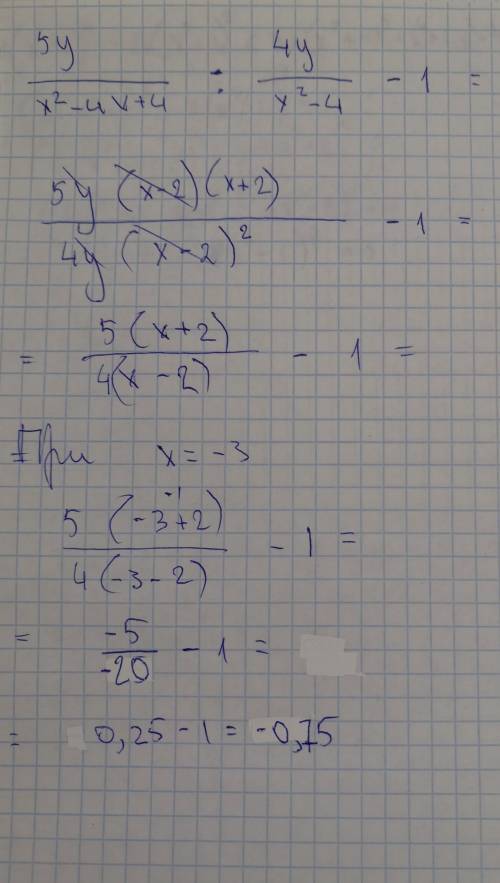 5y / (x² - 4x + 4) : 4y / (x² - 4) - 1 =
5y (x-2)(x+2) / 4y (x-2)² - 1 =
= 5(x+2) / 4(x-2) - 1 =
При x = -3
-1
5 (-3+2) / 4(-3-2) - 1 =
= -5 / -20 - 1 =
= 0,25 - 1 = -0,75